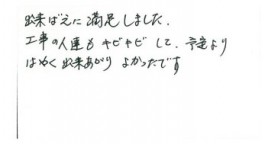 出来ばえに満足しました.
工事の人達もキビキビして、予定より
はやく出来あがりよかったです